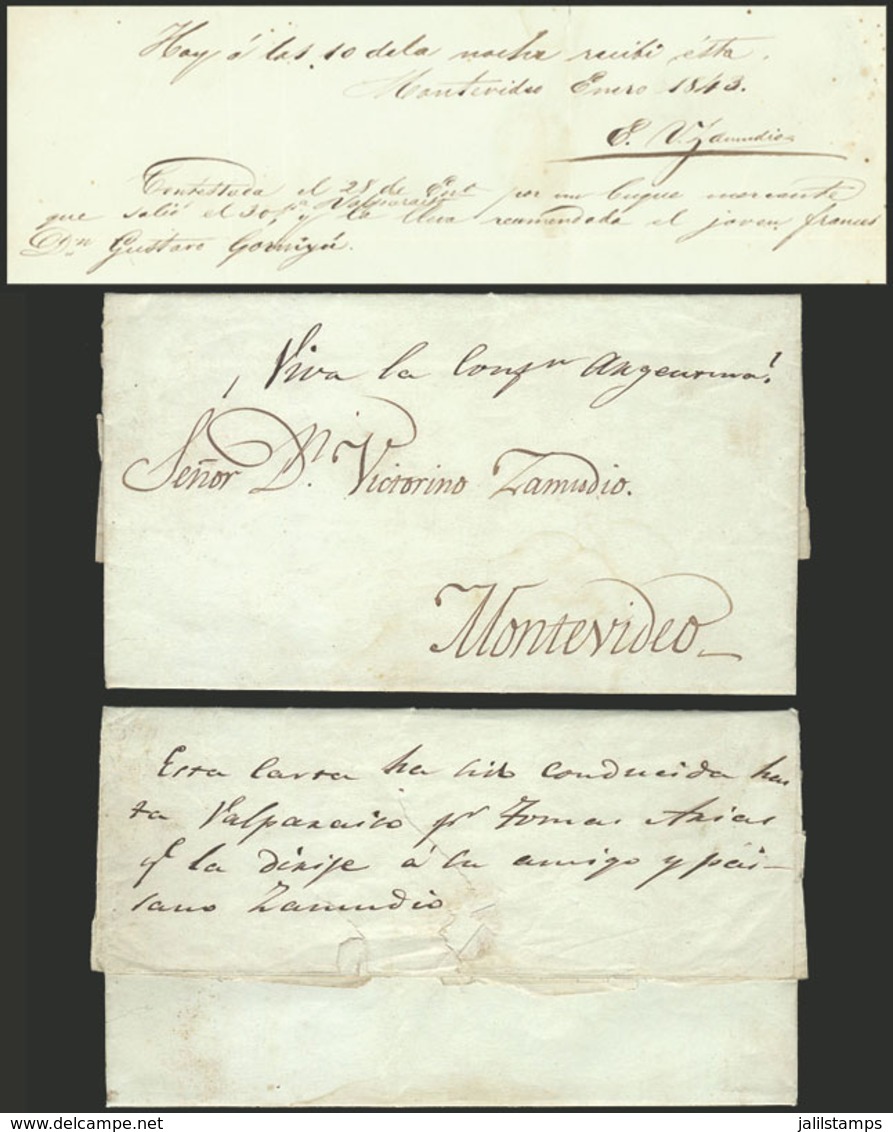 Hoy á las 10 de la noche recibi ésta.
Montevideo Enero 1843.
V. Zamudio
Contestada el 28 de En.o por un buque mercante
que salió el 30 p.a Valparaiso y la lleva recomendada el joven frances
D.n Gustavo
¡Viva la Conf.n Argentina!
Señor D.n Victorino Zamudio.
Montevideo
Esta carta ha sido conducida has
ta Valparaiso p.r Tomas Arias
q.e la dirije á su amigo y pai-
sano Zamudio
delcampe.net
jalilstamps